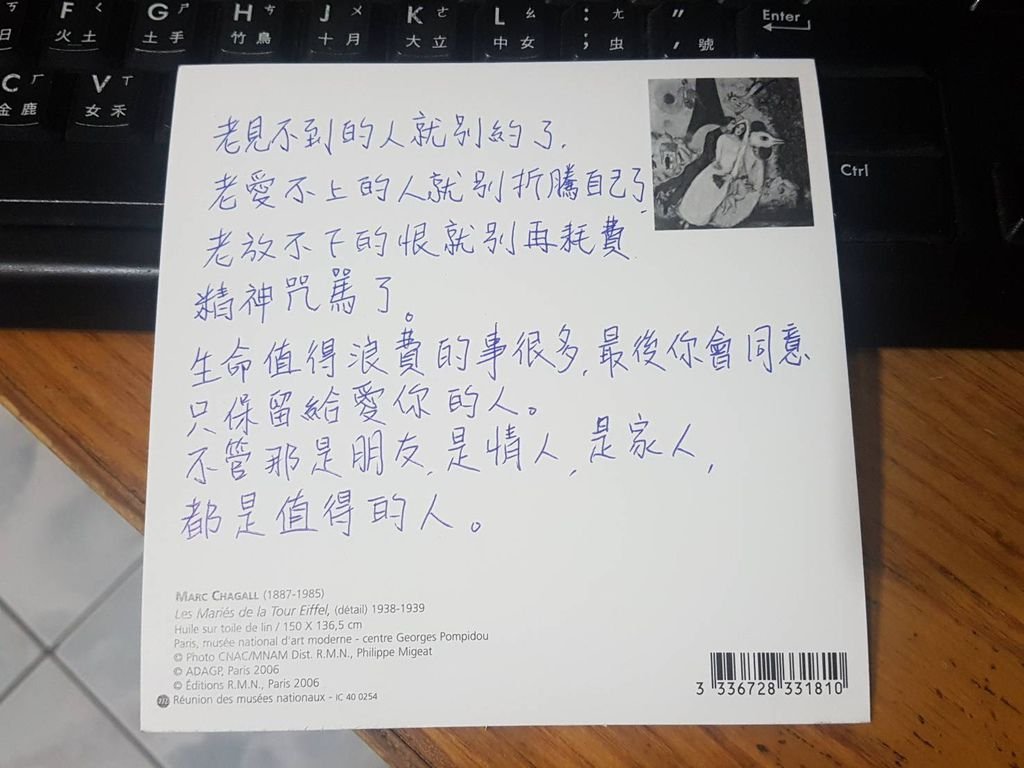 ㄅ
日
F ㄑ
火 土
G ㄕ
土 手
H ㄘ
竹 鳥
J ㄨ
十 月
K ㄜ
大 立
L ㄠ
中 女
: ㄤ
; 虫
"
' 號
Enter
C ㄏ
金 鹿
V ㄒ
女 禾
Ctrl
老見不到的人就別約了.
老愛不上的人就別折騰自己了.
老放不下的恨就別再耗費
精神咒罵了。
生命值得浪費的事很多,最後你會同意
只保留給愛你的人。
不管那是朋友,是情人,是家人,
都是值得的人。
MARC CHAGALL (1887-1985)
Les Mariés de la Tour Eiffel, (détail) 1938-1939
Huile sur toile de lin / 150 X 136,5 cm
Paris, musée national d'art moderne - centre Georges Pompidou
© Photo CNAC/MNAM Dist. R.M.N., Philippe Migeat
© ADAGP, Paris 2006
© Éditions R.M.N., Paris 2006
Réunion des musées nationaux - IC 40 0254
3 336728 331810